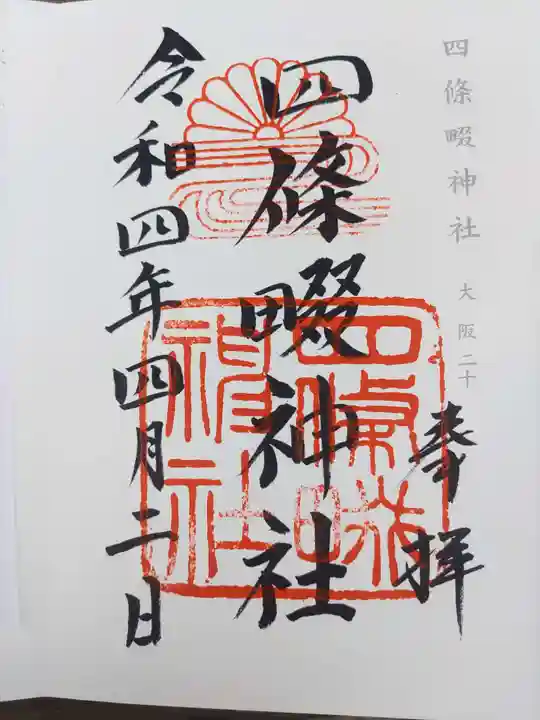 四條畷神社 大阪二十
奉拝
四條畷神社
令和四年四月二日
四條畷神社